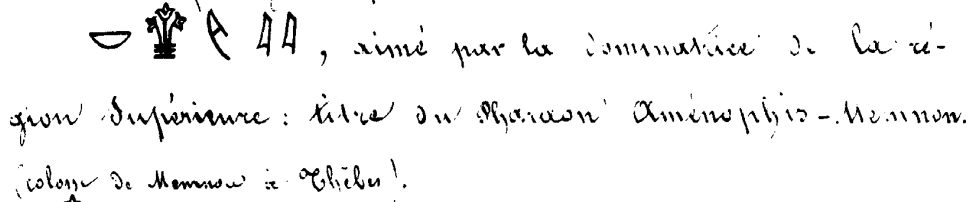 , aimé par la dominatrice de la ré-
gion Supérieure : titre du Pharaon Aménophis-Memnon.
(colosse de Memnon à Thèbes).